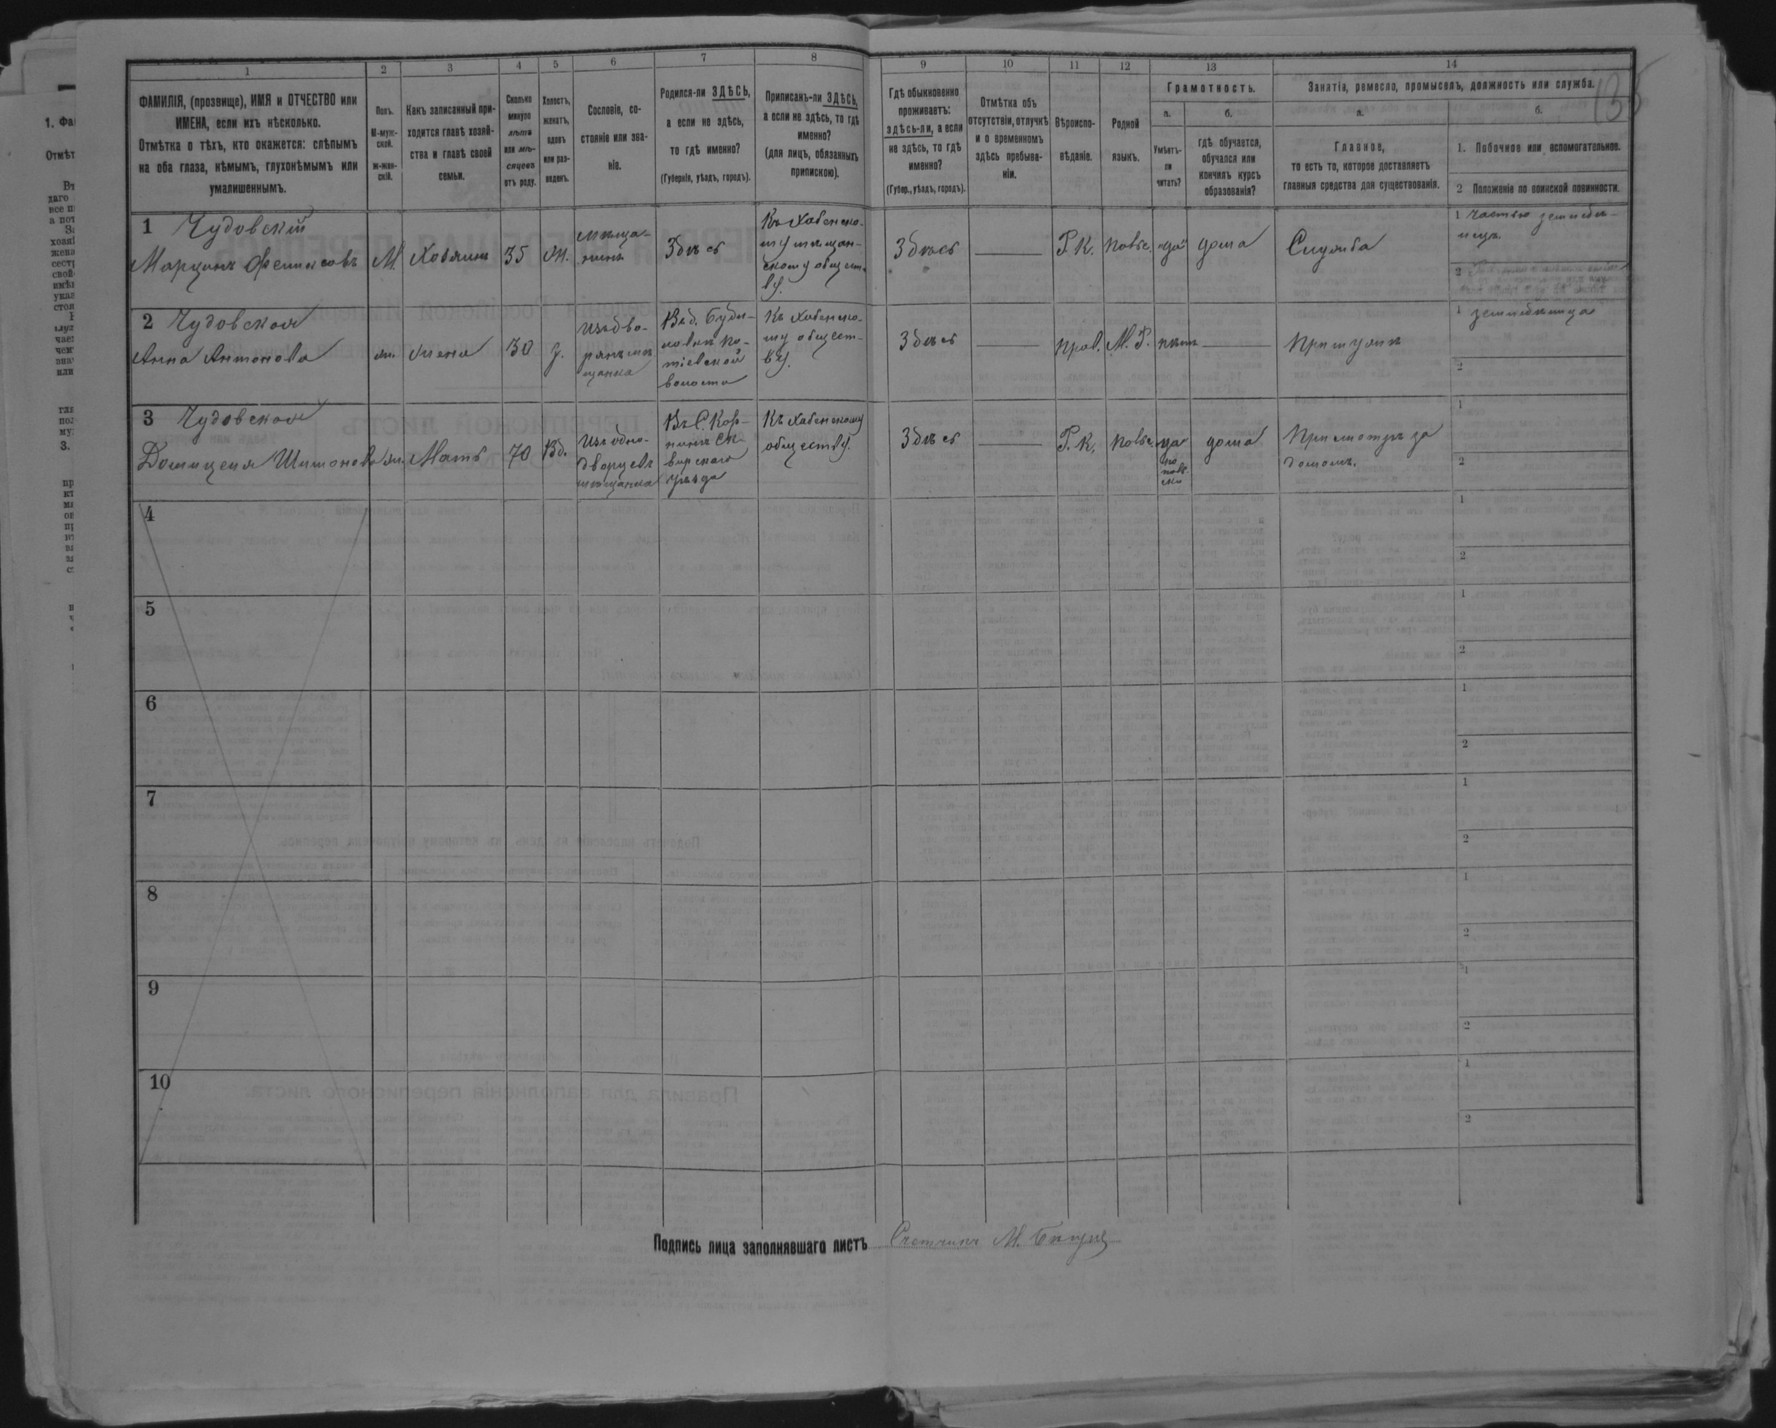 1
2
3
4
5
6
7
8
9
10
11
12
13
14
ФАМИЛІЯ, (прозвище), ИМЯ и ОТЧЕСТВО или
ИМЕНА, если ихъ нѣсколько.
Отмѣтка о тѣхъ, кто окажется: слѣпымъ
на оба глаза, нѣмымъ, глухонѣмымъ или
умалишеннымъ.
Полъ.
М-муж-
ской.
ж-жен-
скій.
Какъ записанный при-
ходится главѣ хозяй-
ства и главѣ своей
семьи.
Сколько
минуло
лѣтъ
или мѣ-
сяцевъ
отъ роду.
Холостъ,
женатъ,
вдовъ
или раз-
веденъ.
Сословіе, со-
стояніе или зва-
ніе.
Родился-ли ЗДѢСЬ,
а если не здѣсь,
то гдѣ именно?
(Губернія, уѣздъ, городъ).
Приписанъ-ли ЗДѢСЬ,
а если не здѣсь, то гдѣ
именно?
(для лицъ, обязанныхъ
припискою).
Гдѣ обыкновенно
проживаетъ:
здѣсь-ли, а если
не здѣсь, то гдѣ
именно?
(Губер., уѣздъ, городъ).
Отмѣтка объ
отсутствіи, отлучкѣ
и о временномъ
здѣсь пребыва-
ніи.
Вѣроиспо-
вѣданіе.
Родной
языкъ.
Грамотность.
а.
Умѣетъ-
ли
читать?
б.
гдѣ обучается,
обучался или
кончилъ курсъ
образованія?
Занятія, ремесло, промыселъ, должность или служба.
а.
Главное,
то есть то, которое доставляетъ
главныя средства для существованія.
б.
1. Побочное или вспомогательное.
2 Положеніе по воинской повинности.
1 Чудовскій
Марцинъ
М. Хозяинъ 35 ж.
мѣща-
нинъ
Здѣсь
Къ Хабенско-
му мѣщан-
скому общест-
ву.
Здѣсь
Р. К. да дома Служба
1 Частью земледѣ-
2
2 Чудовская
Анна Антонова
ж. Жена 30
Къ Хабенско-
му общест-
ву.
Здѣсь
прав. М. Р. нѣтъ При мужѣ
1
2
3 Чудовская
ж. Мать 70 Вд.
Изъ одно-
дворцевъ
мѣщанка
уѣзда
Къ Хабенскому
обществу.
Здѣсь
Р. К. да дома
Присмотръ за
домомъ.
1
2
4
1
2
5
1
2
6
1
2
7
1
2
8
1
2
9
1
2
10
1
2
Подпись лица заполнявшаго листъ Счетчикъ М.